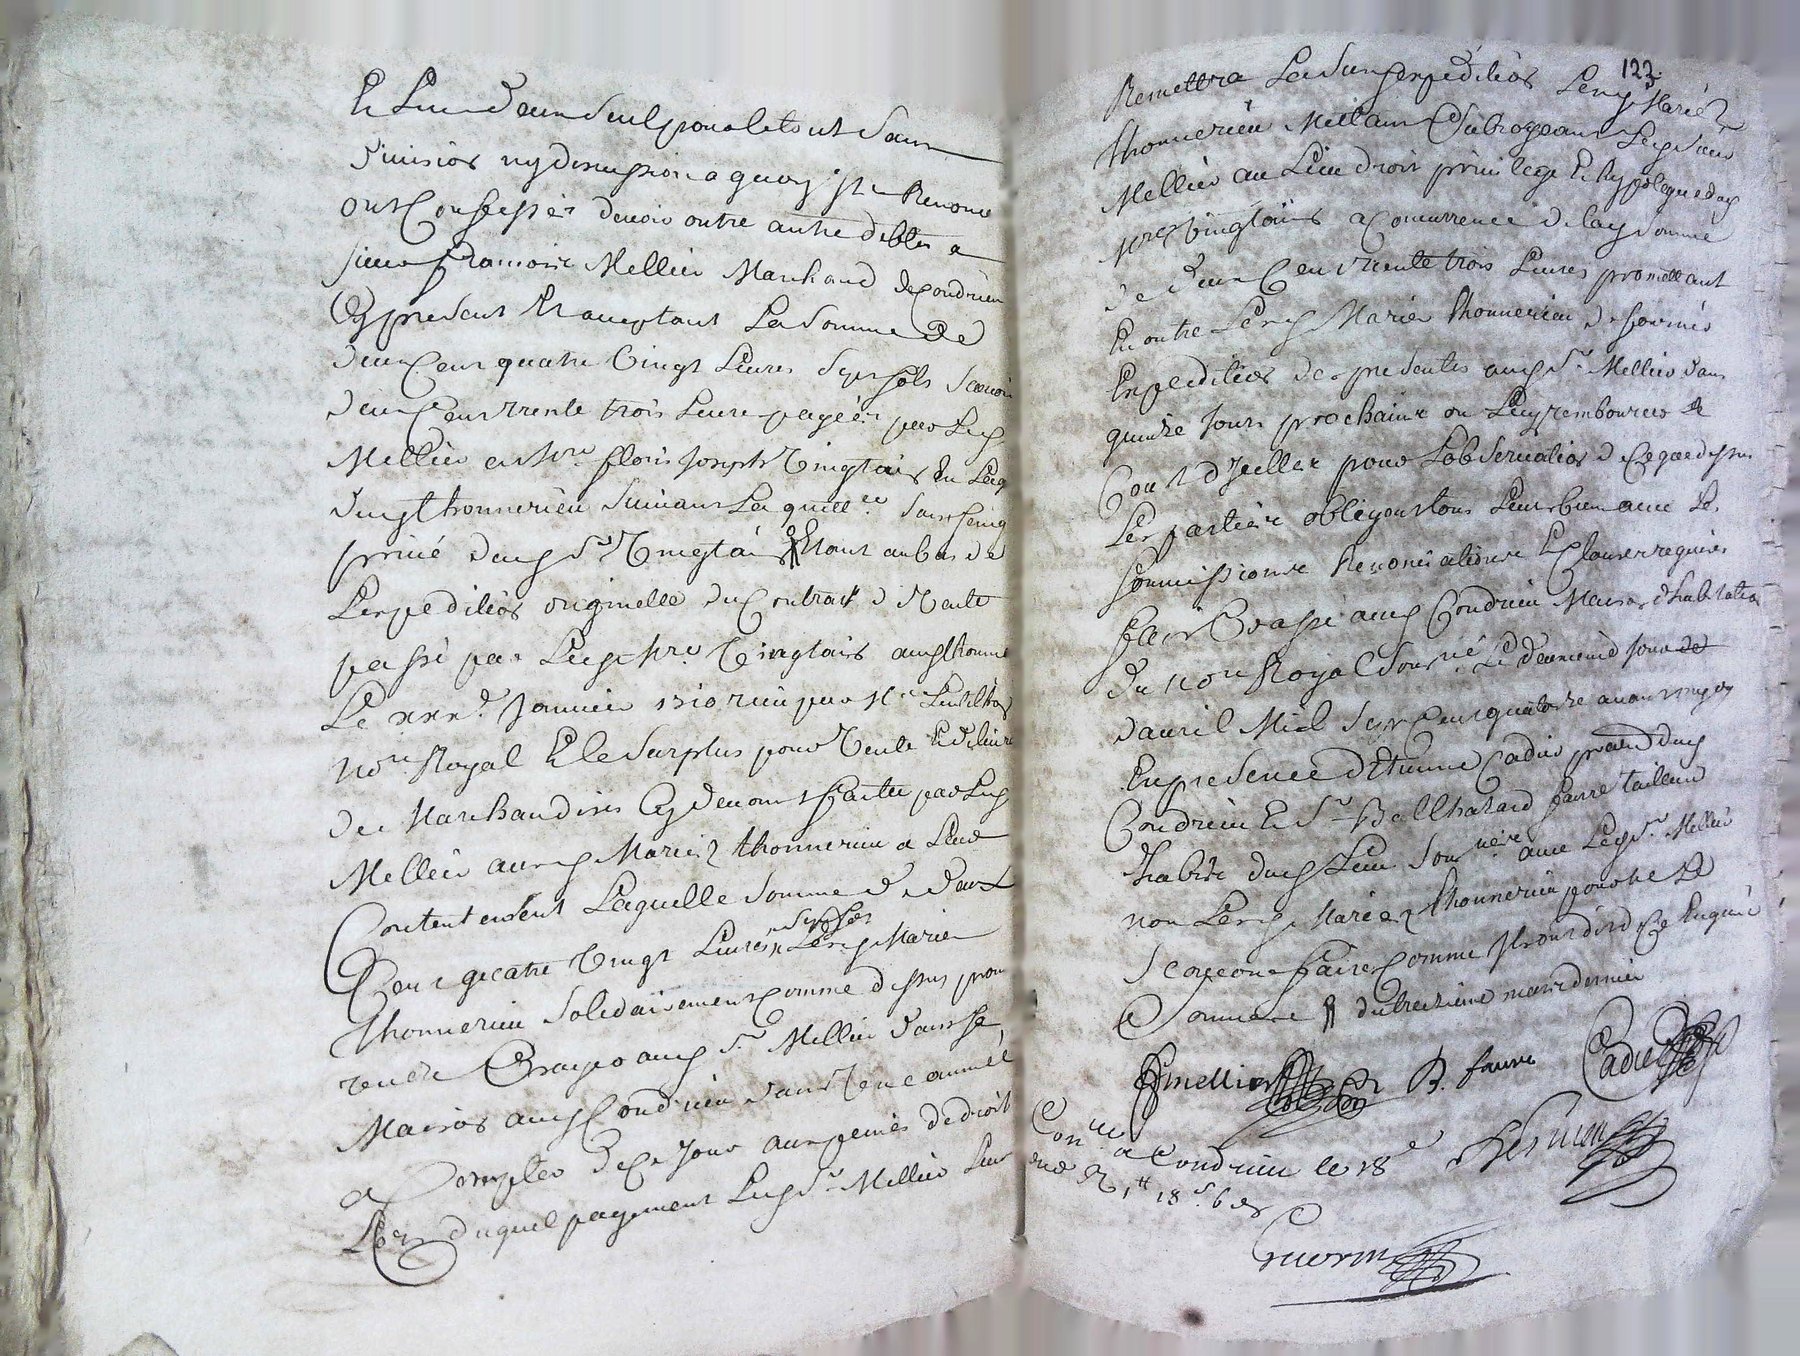 Et l'un d'eux seul pour le tout sans
division ny discussion a quoy ils Renonc
ont Confessé devoir outre autre debtes a
sieur françois Mellier Marchand de Condrieu
Cy present Et acceptant La Somme de
deux Cens quatre Vingt Livres Sept sols scavoir
deux Cens Trente trois Livres payées par Led
Mellier a Me floris Joseph Vingtain En l'acq
dud thonnerieu Suivant La quitt.ce Sous seing
privé dud Sr Vingtain Etant au bas de
L'expedition originelle du Contract de Vente
passé par Led Me Vingtain aud thonne
Le xxx.e Janvier 1710 reçu par Me
No.re Royal Et le Surplus pour Vente Et delivre
de Marchandises Cy devant faitte par Led
Mellier auxd Mariez thonnerieu a Leur
Contentement Laquelle Somme de deux
Cens quatre Vingt Livres Sept sols Lesd Mariez
thonnerieu Solidairement Comme dessus pro
rendre Et payer aud Sr Mellier dans sa
Maison aud Condrieu dans Une année
a Compter de Ce Jour aux peines de droit
Lors duquel payement Led Sr Mellier Leur
122
Remettra Lesd expeditions Lesd Mariez
thonnerieu Mettant Subrogeant Led Sieur
Mellier au Lieu droit privilege Et hypoteque dud
Vingtain a Concurrence de lad Somme
de deux Cens trente trois Livres promettant
En outre Lesd Mariez thonnerieu de fournir
Expedition des presentes aud Sr Mellier dans
quinze Jours prochains ou Luy rembourser le
Cout d'Icelles pour L'observation de Ce que dessus
Les parties obligeant tous Leurs biens avec Les
Soumissions Renonciations Et Clauses requises
fait Et passé aud Condrieu Maison d'habitation
du No.re Royal Soussigné Le deuxieme Jour de
d'avril Mil Sept Cens quatorze avant midy
En presence d'Etienne Cadier prat dud
Condrieu Et Sr Balthazard faure tailleur
habitt dud Lieu Soussignez avec Led Sr Mellier
non Lesd Mariez thonnerieu pour ne le
Scavoir faire Comme Ils ont dit de Ce Enquis
Sommé du treizieme mars dernier
fmellier B. faure Cadier
Con.lle a Condrieu le 18e